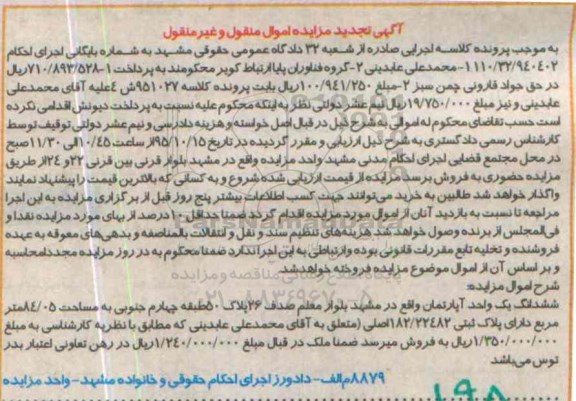 آگهی تجدید مزایده اموال منقول و غیر منقول
به موجب پرونده کلاسه اجرایی صادره از شعبه ۳۲ دادگاه عمومی حقوقی مشهد به شماره بایگانی اجرای احکام
۱۱۱۰/۳۲/۹۴۰۴۰۲-محمدعلی عابدینی ۲-گروه فناوران پایا ارتباط کویر محکومند به پرداخت ۱-۷۱۰/۸۹۳/۵۲۸ریال
در حق جواد قارونی چمن سبز ۲-مبلغ ۱۰۰/۹۴۱/۲۵۰ریال بابت پرونده کلاسه ۹۵۱۰۲۷ش ۴علیه آقای محمدعلی
عابدینی و نیز مبلغ ۱۹/۷۵۰/۰۰۰ریال نیم عشر دولتی نظر به اینکه محکوم علیه نسبت به پرداخت دیونش اقدامی نکرده
است حسب تقاضای محکوم له اموالی به شرح ذیل در قبال اصل خواسته و هزینه دادرسی و نیم عشر دولتی توقیف توسط
کارشناس رسمی دادگستری به شرح ذیل ارزیابی و مقرر گردیده در تاریخ ۹۵/۱۰/۱۵از ساعت ۱۰/۴۵الی ۱۱/۳۰صبح
در محل مجتمع قضایی اجرای احکام مدنی مشهد واحد مزایده واقع در مشهد بلوار قرنی بین قرنی ۲۲و ۲۴از طریق
مزایده حضوری به فروش برسد مزایده از قیمت ارزیابی شده شروع و به کسانی که بالاترین قیمت را پیشنهاد نمایند
واگذار خواهد شد طالبین به خرید می‌توانند جهت کسب اطلاعات بیشتر پنج روز قبل از برگزاری مزایده به این اجرا
مراجعه تا نسبت به بازدید آنان از اموال مورد مزایده اقدام گردد ضمنا حداقل ۱۰درصد از بهای مورد مزایده نقدا و
فی‌المجلس از برنده وصول خواهد شد هزینه‌های تنظیم سند و نقل و انتقالات بالمناصفه و بدهی‌های معوقه به عهده
فروشنده و تخلیه تابع مقررات قانونی بوده و ارتباطی به این اجرا ندارد ضمنا محکوم به در روز مزایده مجددا محاسبه
و بر اساس آن از اموال موضوع مزایده فروخته خواهد شد
شرح اموال مزایده:
ششدانگ یک واحد آپارتمان واقع در مشهد بلوار معلم صدف ۲۶پلاک ۵۰طبقه چهارم جنوبی به مساحت ۸۴/۰۵متر
مربع دارای پلاک ثبتی ۱۸۲/۲۲۴۸۲اصلی (متعلق به آقای محمدعلی عابدینی که مطابق با نظریه کارشناسی به مبلغ
۱/۳۵۰/۰۰۰/۰۰۰ریال به فروش میرسد ضمنا ملک در قبال مبلغ ۱/۲۴۰/۰۰۰/۰۰۰ریال در رهن تعاونی اعتبار بدر
توس می‌باشد
۸۸۷۹م الف-دادورز اجرای احکام حقوقی و خانواده مشهد-واحد مزایده